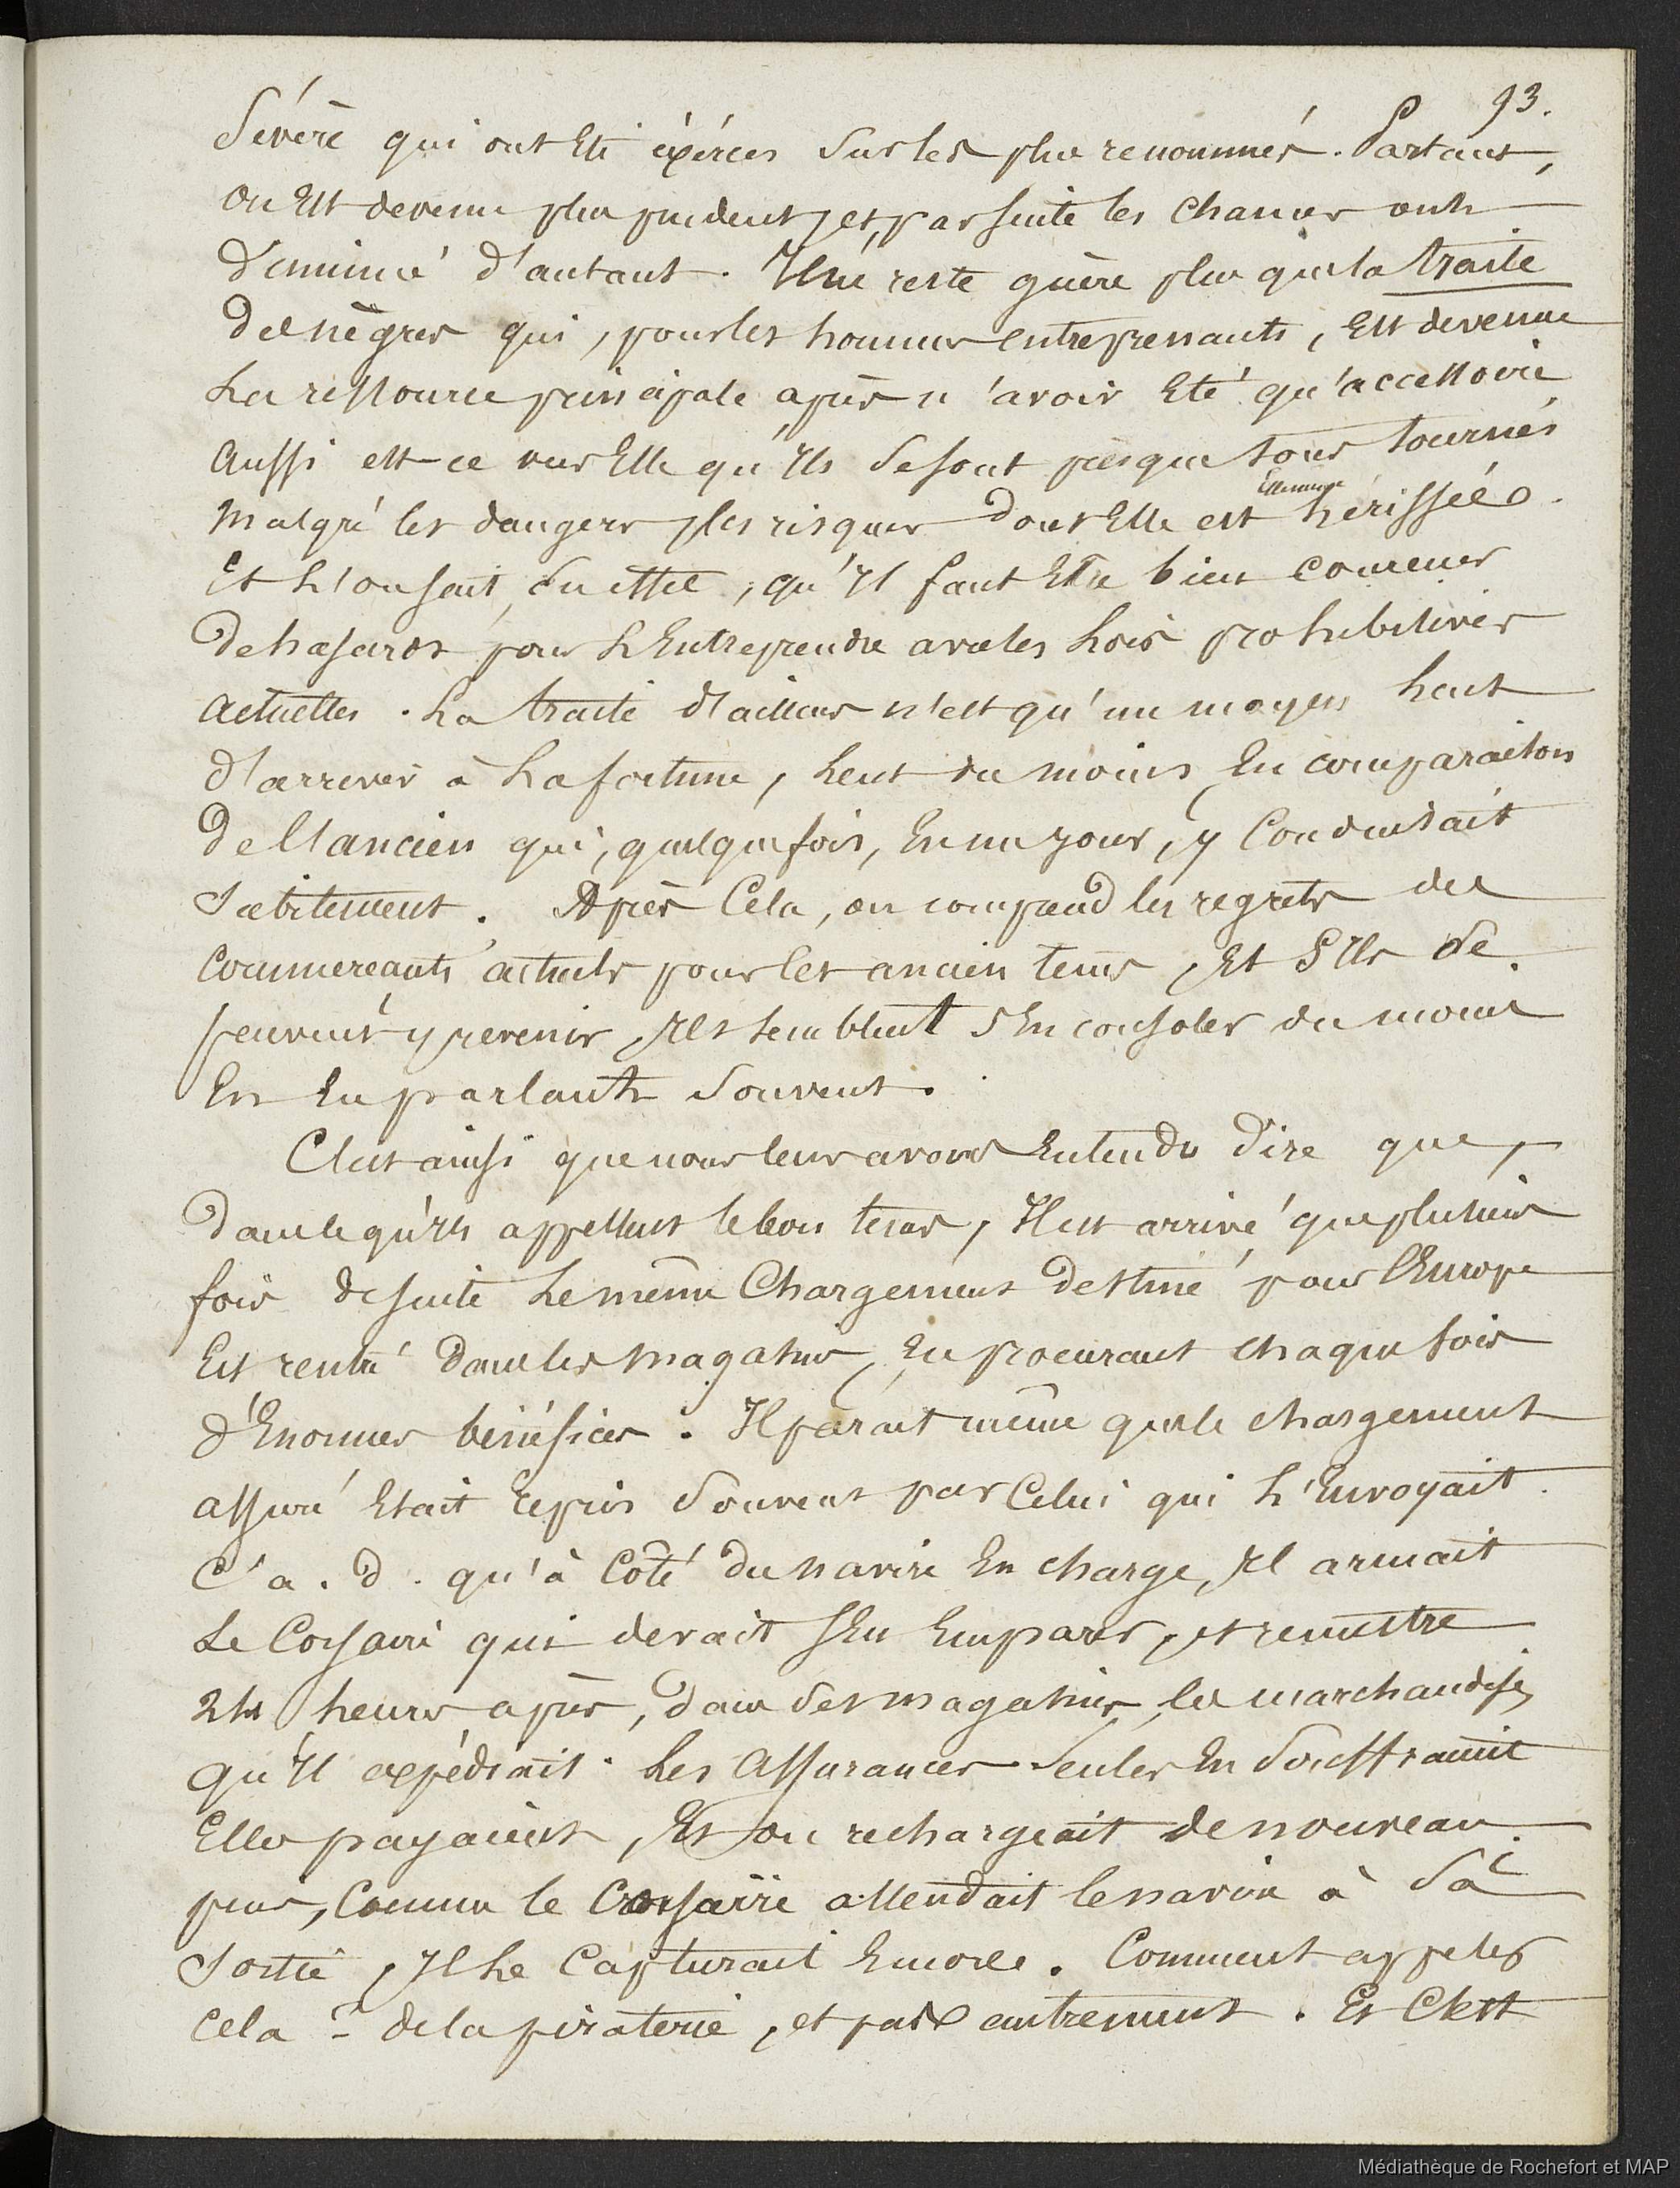 93.
Sévère qui ont été éxérces sur les plus renommés. Partant,
on est devenu plus prudent, et, par suite les chances ont
diminué d'autant. Il ne reste guère plus que la traite
des nègres qui, pour les hommes entreprenants, est devenue
la ressource principale après n'avoir été qu'accessoire
Aussi est-ce vers Elle qu'Ils se sont presque tous tournés
malgré les dangers, les risques dont Elle est hérissée.
Et l'on sait, en effet, qu'Il faut Etre bien coureur
de hasards pour l'Entreprendre avec les lois prohibitives
actuelles. La traite d'ailleurs n'est qu'un moyen lent
d'arriver à la fortune, lent du moins En comparaison
de l'ancien qui, quelquefois, En un jour, y conduisait
subitement. Après Cela, on comprend les regrets des
commercants actuels pour les ancien tems, Et S'Ils ne
peuvent y revenir, Ils semblent s'En consoler du moins
En En parlant souvent.
C'est ainsi que nous leur avons Entendu dire que,
dans le qu'Ils appellent le bon tems, Il est arrivé que plusieurs
fois de suite le même Chargement destiné pour l'Europe
Est rentré dans les magasins, En procurant chaque fois
d'Enormes bénéfices. Il parait même que le chargement
assuré Etait repris souvent par Celui qui l'Envoyait.
C'a. d. qu'à Côté du navire En charge, Il armait
Le Corsaire qui devait s'En Emparer, et remettre
24 heures après, dans ses magasins, les marchandises
qu'Il expédiait. Les Assurances seules En souffraient
Elles payaient, Et on rechargeait de nouveau.
puis, Comme le Corsaire attendait le navire à Sa
Sortie, Il Le Capturait Encore. Comment appeler
Cela ? - de la piraterie, et pas autrement. Et C'est
Médiathèque de Rochefort et MAP